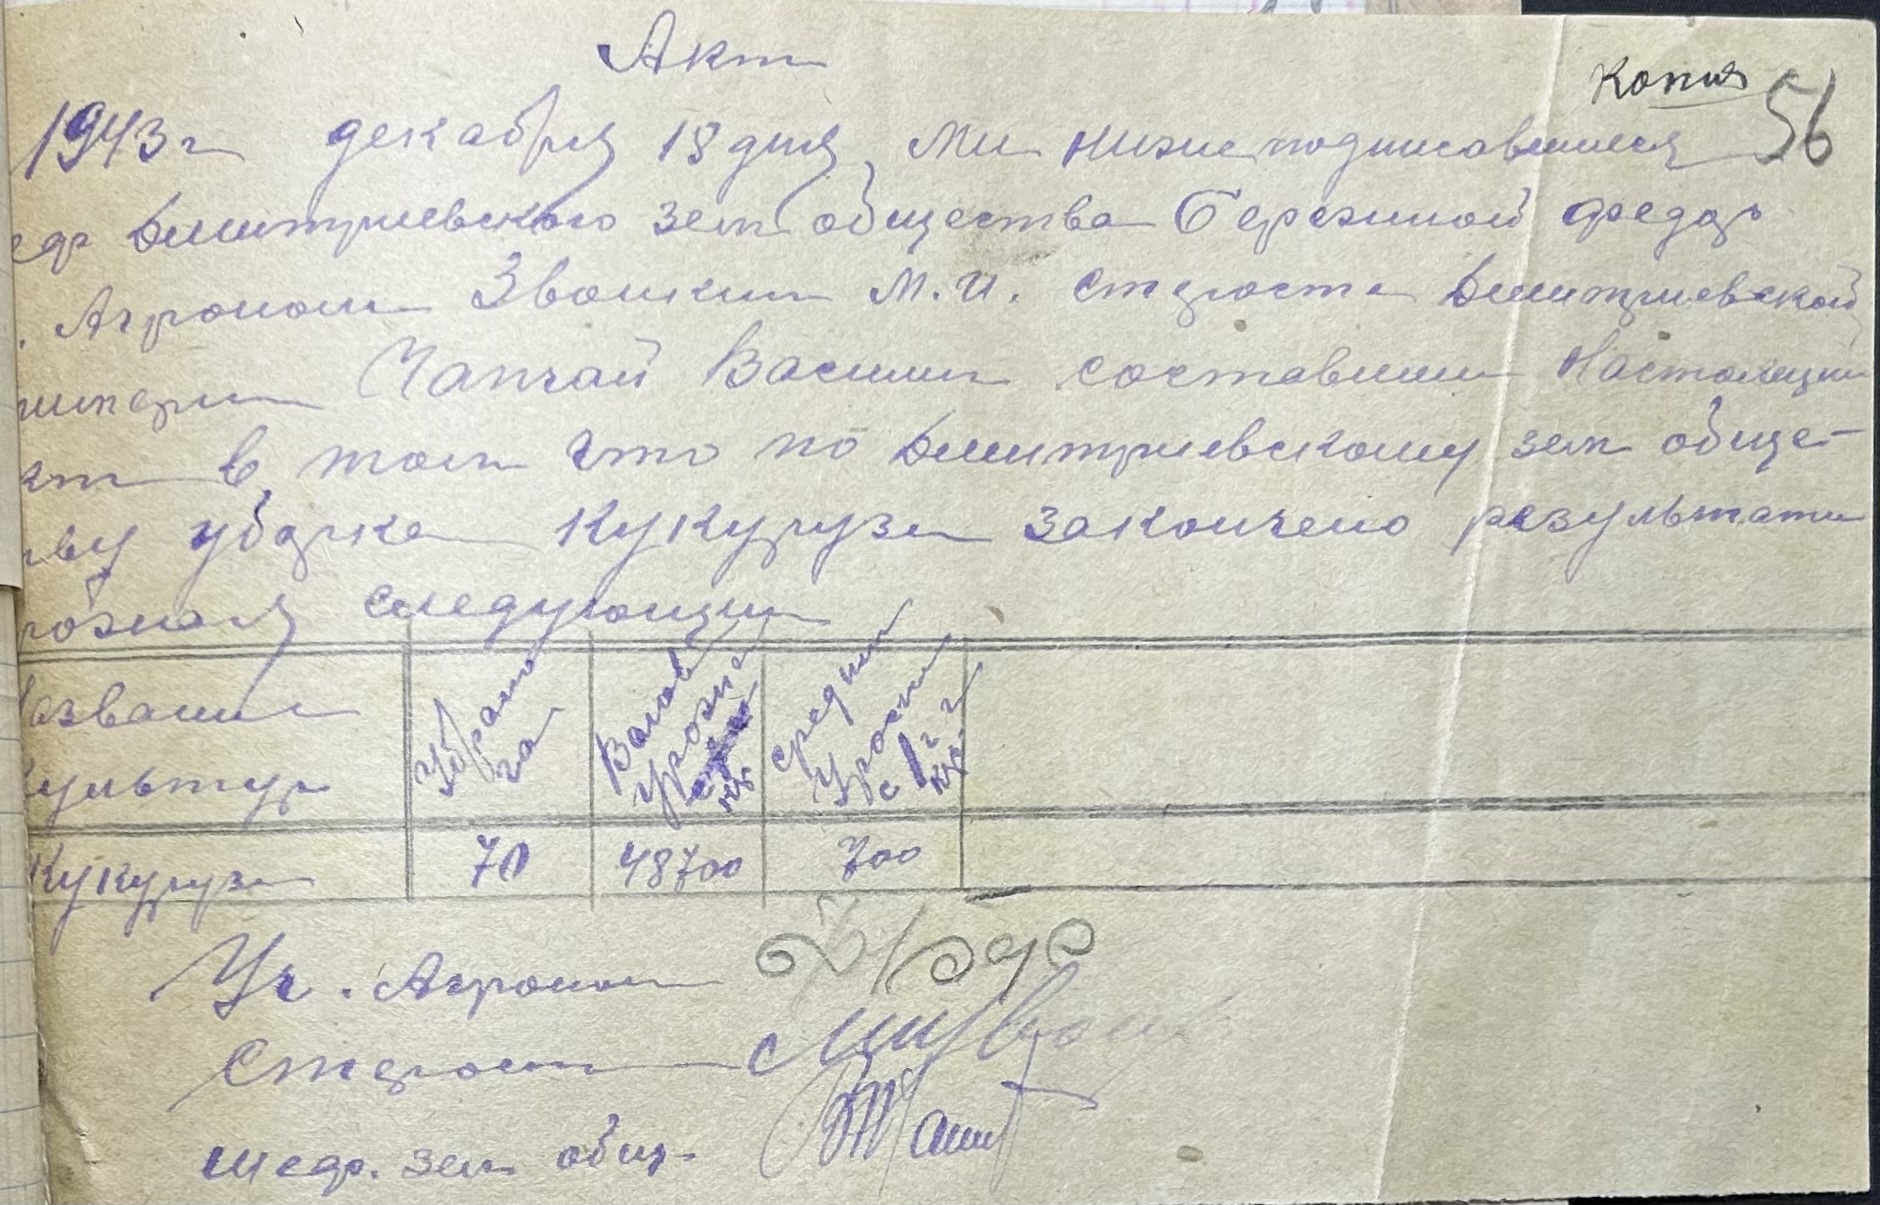 Акт
Копия
56
1943 г декабря 18 дня, Ми ниже подписавшиеся
Дмитриевского зем общества Бережной Федор
Агроном Звонкин М.И. Староста Дмитриевской
Чапчай Василий составили Настоящий
кт в том что по Дмитриевскому зем обще-
тву уборка Кукурузи закончено результати
рожая следующии
Названия
культур
Убрано
га
Валов
Урожай
цн
средний
Урожай
с 1 г
Кукурузи
70
48700
700
Уч. Агроном
Староста
Шефр. зем общ.